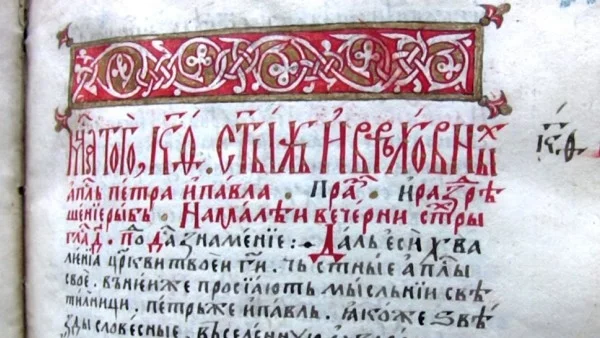 М҃ца того, к҃ѳ. ст҃ыхь и врьховных
ап҃ль петра и павла . Пра҃ . и разрѣ
шенїе рыбь . На малѣи вечерни ст҃ры
гла҃ д҃ . по да҃ знаменїе : Даль еси хва
ленїа цр҃кви твоеи г҃и . чьстные ап҃лы
своѐ . вь ниⷯже просїають мысльнїи свѣ
тилници , петрь же и павль . ꙗкоже ѕвѣ
зды словесные , вьселенную
к҃ѳ